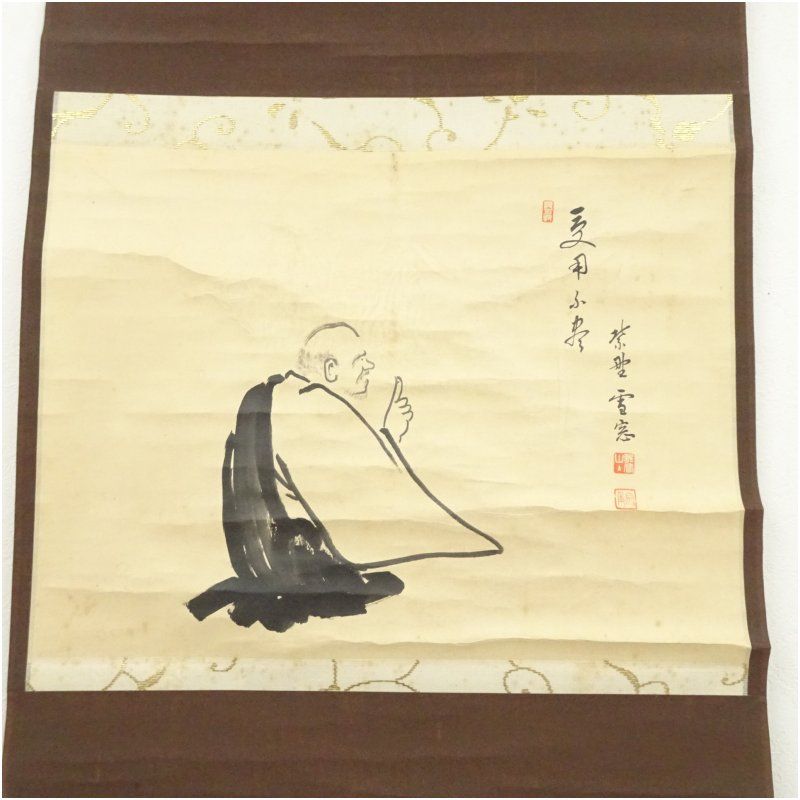 受用不尽
紫野 雪窓